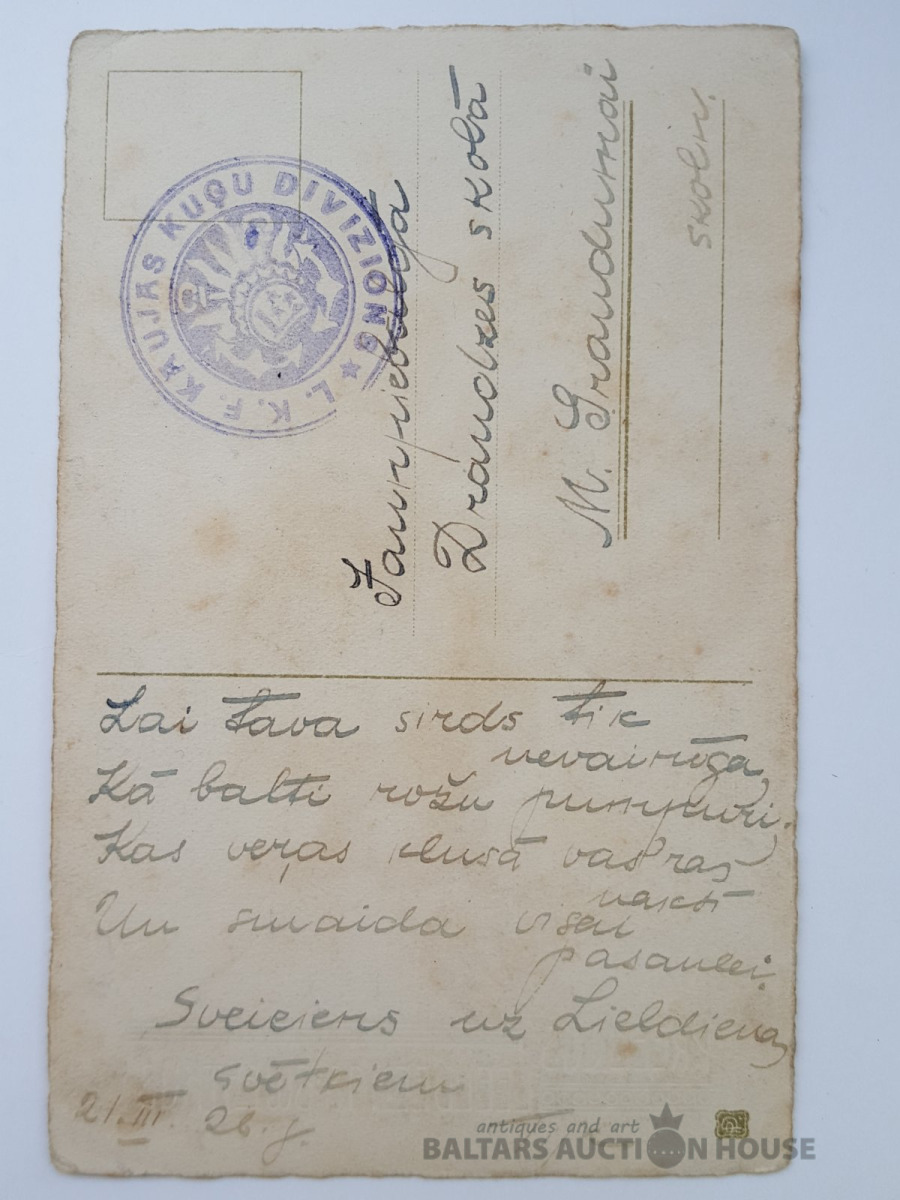 KAUJAS KUĢU DIVIZIONS ★ L. K. F.
Jaunpiebalga
Draudzes skolā
M. Graudumai
skoln.
Lai tava sirds tik
nevainīga,
Kā balti rožu pumpuri,
Kas veŗas klusā vasras
naktī
Un smaida visai
pasaulei.
Sveiciens uz Lieldienas
svētkiem
21. III. 26. g.
antiques and art
BALTARS AUCTION HOUSE